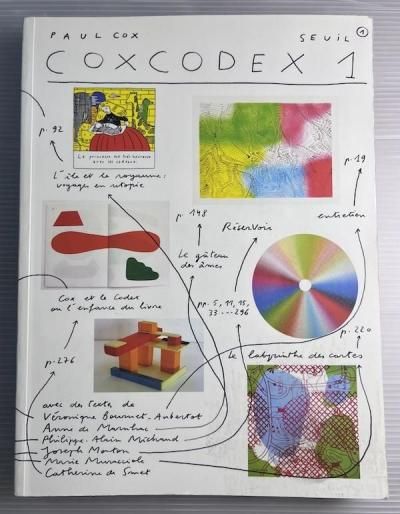 PAUL COX
SEUIL
1
COXCODEX 1
p. 92
La princesse est très heureuse
avec les cadeaux.
L'île et le royaume:
voyages en utopie
p. 19
p. 148
Réservoir
entretien
Le gâteau
des âmes
Cox et le Codex
ou l'enfance du livre
pp. 5, 11, 15,
33 --- 296
p. 220
p. 276
le labyrinthe des cartes
avec des texte de
Véronique Bournet-Aubertot
Anne de Marnhac
Philippe-Alain Michaud
Joseph Morton
Marie Muracciole
Catherine de Smet